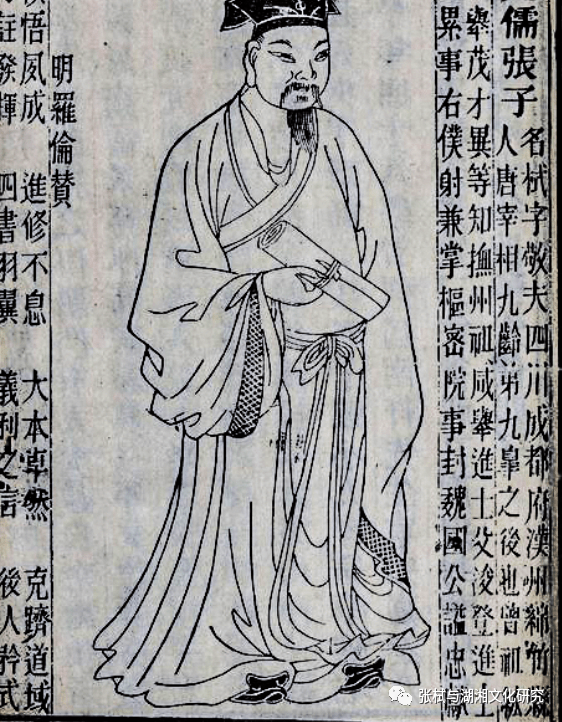 儒張子
名栻字敬夫四川成都府漢州綿竹
人唐宰相九齡弟九皐之後也曾祖
舉茂才異等知撫州祖咸舉進士父浚登進
累事右僕射兼掌樞密院事封魏國公諡忠獻
明羅倫贊
悟夙成 進修不息 大本卓然 克躋道域
註發揮 四書羽翼 義利之言 後人矜式
张栻与湖湘文化研究